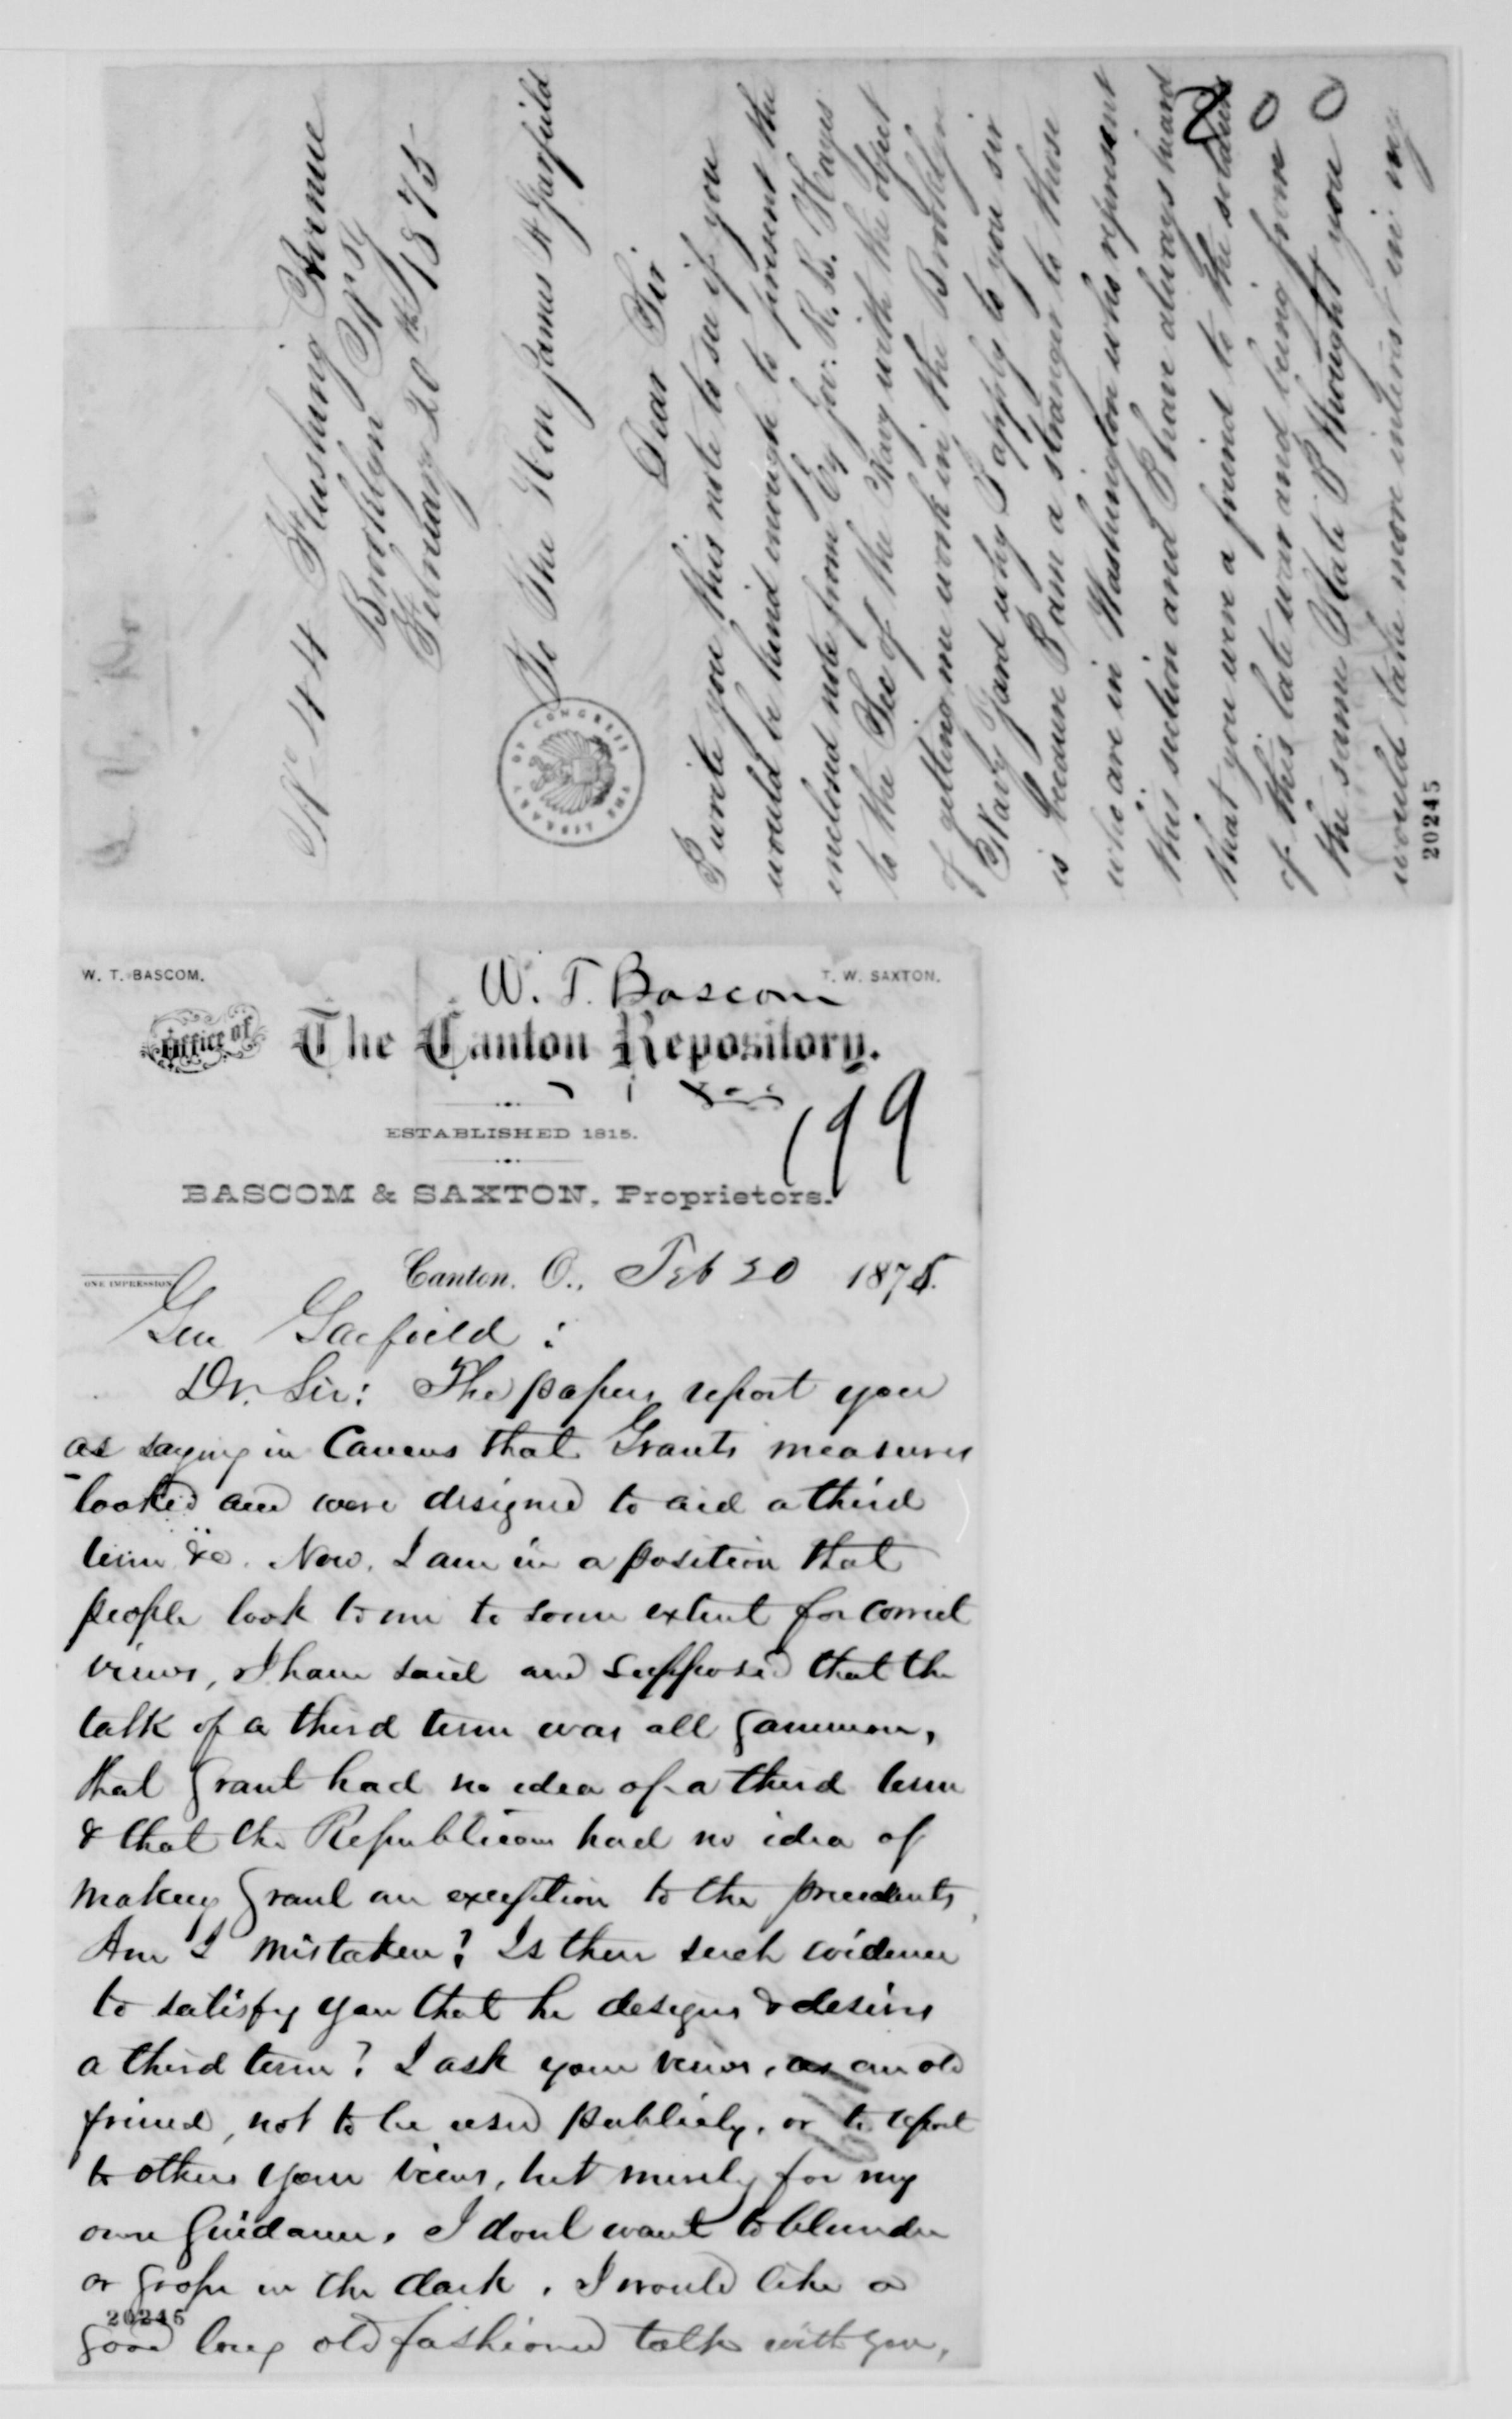 No 44 Flushing Avenue
Brooklyn N Y
February 20th 1875
To The Hon James A Garfield
Dear Sir
I write you this note to see if you
would be kind enough to present the
enclosed note from Ex Gov: R. B. Hayes
to the Sec of the Navy with the object
of getting me work in the Brooklyn
Navy Yard why I apply to you sir
is because I am a stranger to those
who are in Washington who represent
this section and I have always heard
that you were a friend to the soldiers
of this late war and being from
the same State I thought you
would take more interest in my
200
20245
THE LIBRARY OF CONGRESS
W. T. BASCOM.
W. T. Bascom
T. W. SAXTON.
Office of The Canton Repository.
199
ESTABLISHED 1815.
BASCOM & SAXTON, Proprietors.
ONE IMPRESSION
Canton, O., Feb 20 1875.
Gen Garfield:
Dr. Sir: The papers report you
as saying in Caucus that Grants measures
looked and were designed to aid a third
term &c. Now, I am in a position that
people look to me to some extent for correct
views, I have said and supposed that the
talk of a third term was all gammon,
that Grant had no idea of a third term
& that the Republicans had no idea of
making Grant an exception to the precedents
Am I mistaken? Is there such evidence
to satisfy you that he designs & desires
a third term? I ask your views, as an old
friend, not to be used publicly, or to report
to others your views, but merely for my
own guidance. I dont want to blunder
or grope in the dark. I would like a
good long old fashioned talk with you,
20246